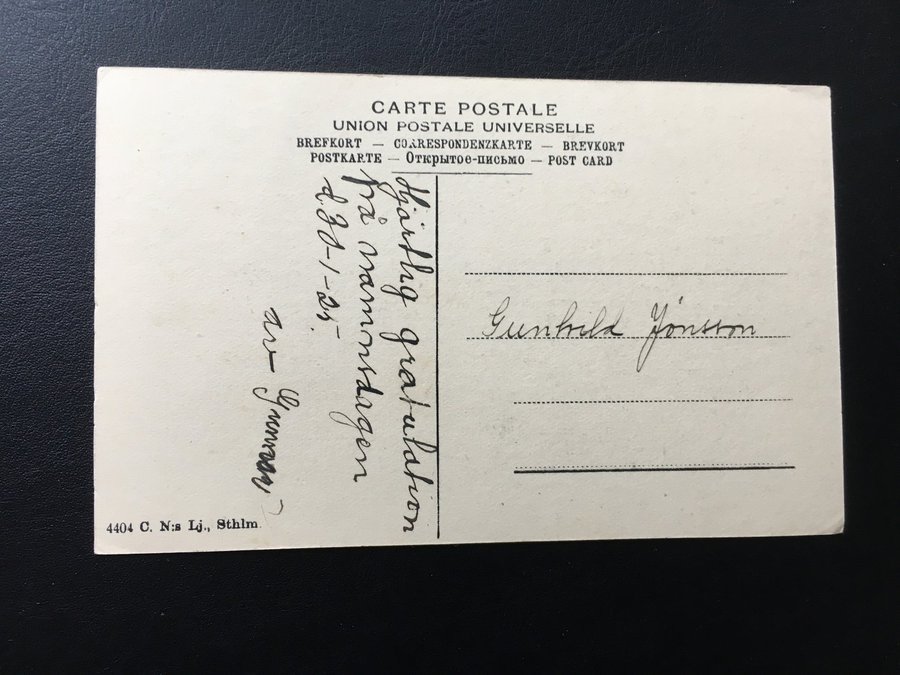 CARTE POSTALE
UNION POSTALE UNIVERSELLE
BREFKORT — CORRESPONDENZKARTE — BREVKORT
POSTKARTE — Открытое-письмо — POST CARD
Hjärtlig gratulation
på namnsdagen
d. 30-1-25.
av Gunnar
Gunhild Jönsson
4404 C. N:s Lj., Sthlm